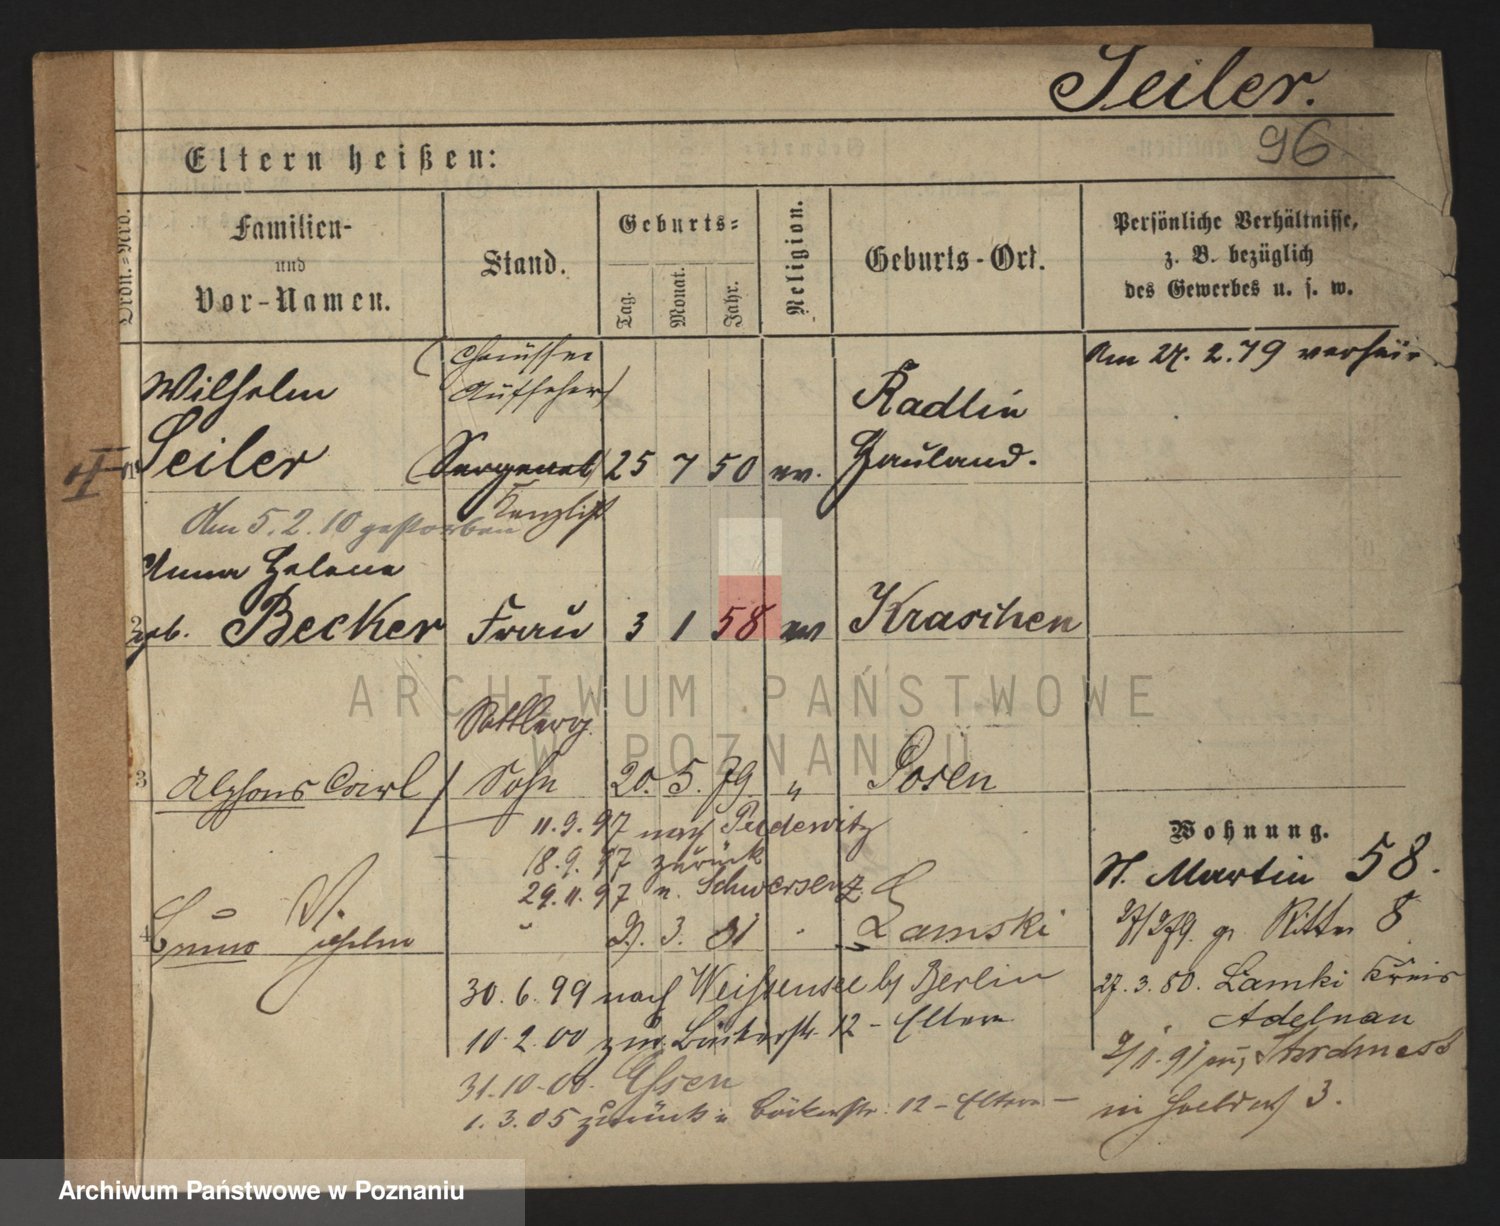 Seiler.
96
Eltern heißen:
Ordn.=Nro.
Familien-
und
Vor-Namen.
Stand.
Geburts=
Tag.
Monat.
Jahr.
Religion.
Geburts-Ort.
Persönliche Verhältnisse,
z. B. bezüglich
des Gewerbes u. s. w.
(Chaussee
Aufseher)
Am 27. 2. 79 verheir.
Wilhelm
Seiler
(Sergeant)
25 7 50 ev.
Radlin
Hauland.
Kanzlist
Am 5. 2. 10 gestorben
Anna Helene
2
geb. Becker
Frau
3 1 58 ev
Kraschen
ARCHIWUM PAŃSTWOWE
W POZNANIU
Sattlerg.
3
Alphons Carl
Sohn
20. 5. 79. "
Posen
11. 9. 97 nach Pudewitz
18. 9. 97 zurück
29. 11. 97 n. Schwersenz
4
Bruno Wilhelm
" 3. 81
Lamski
30. 6. 99 nach Weißensee b/ Berlin
10. 2. 00 zur. Bäckerstr. 12 - Eltern
31. 10. 00. Essen
1. 3. 05 zurück Bäckerstr. 12 - Eltern -
Wohnung.
St. Martin 58.
Ritter 8
27. 3. 80. Lamki Kreis
Adelnau
3.
Archiwum Państwowe w Poznaniu